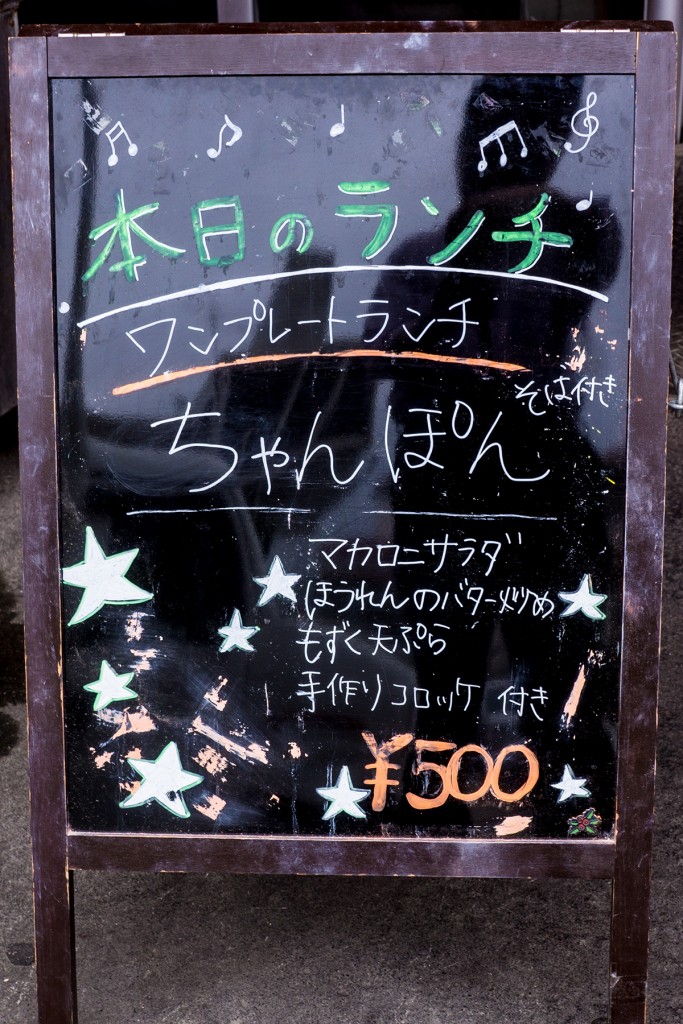 本日のランチ
ワンプレートランチ
そば付き
ちゃんぽん
マカロニサラダ
ほうれんのバター炒め
もずく天ぷら
手作りコロッケ 付き
¥500